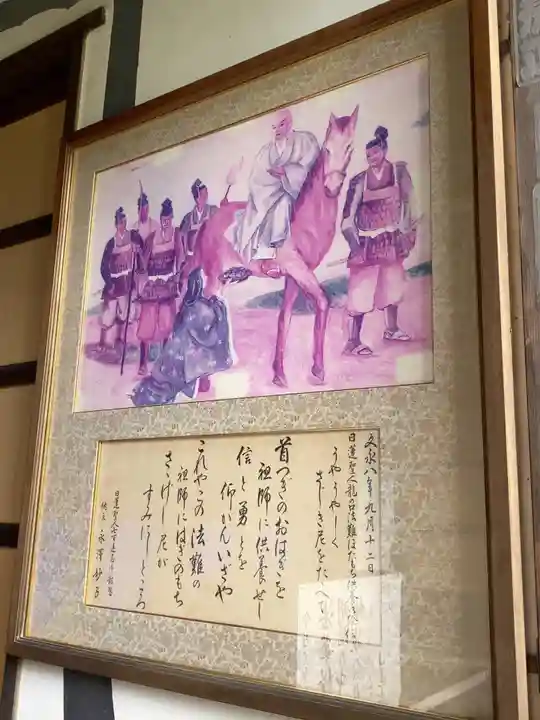 文永八年九月十二日
日蓮聖人龍の口法難ぼたもち供養
うやうやしく
さじき尼をたへ
首つぎのおはぎを
祖師に供養せし
信と勇とを
仰がんいざや
これやこの法難の
祖師にはぎのもち
さゝげし尼が
すみにしところ
日蓮聖人